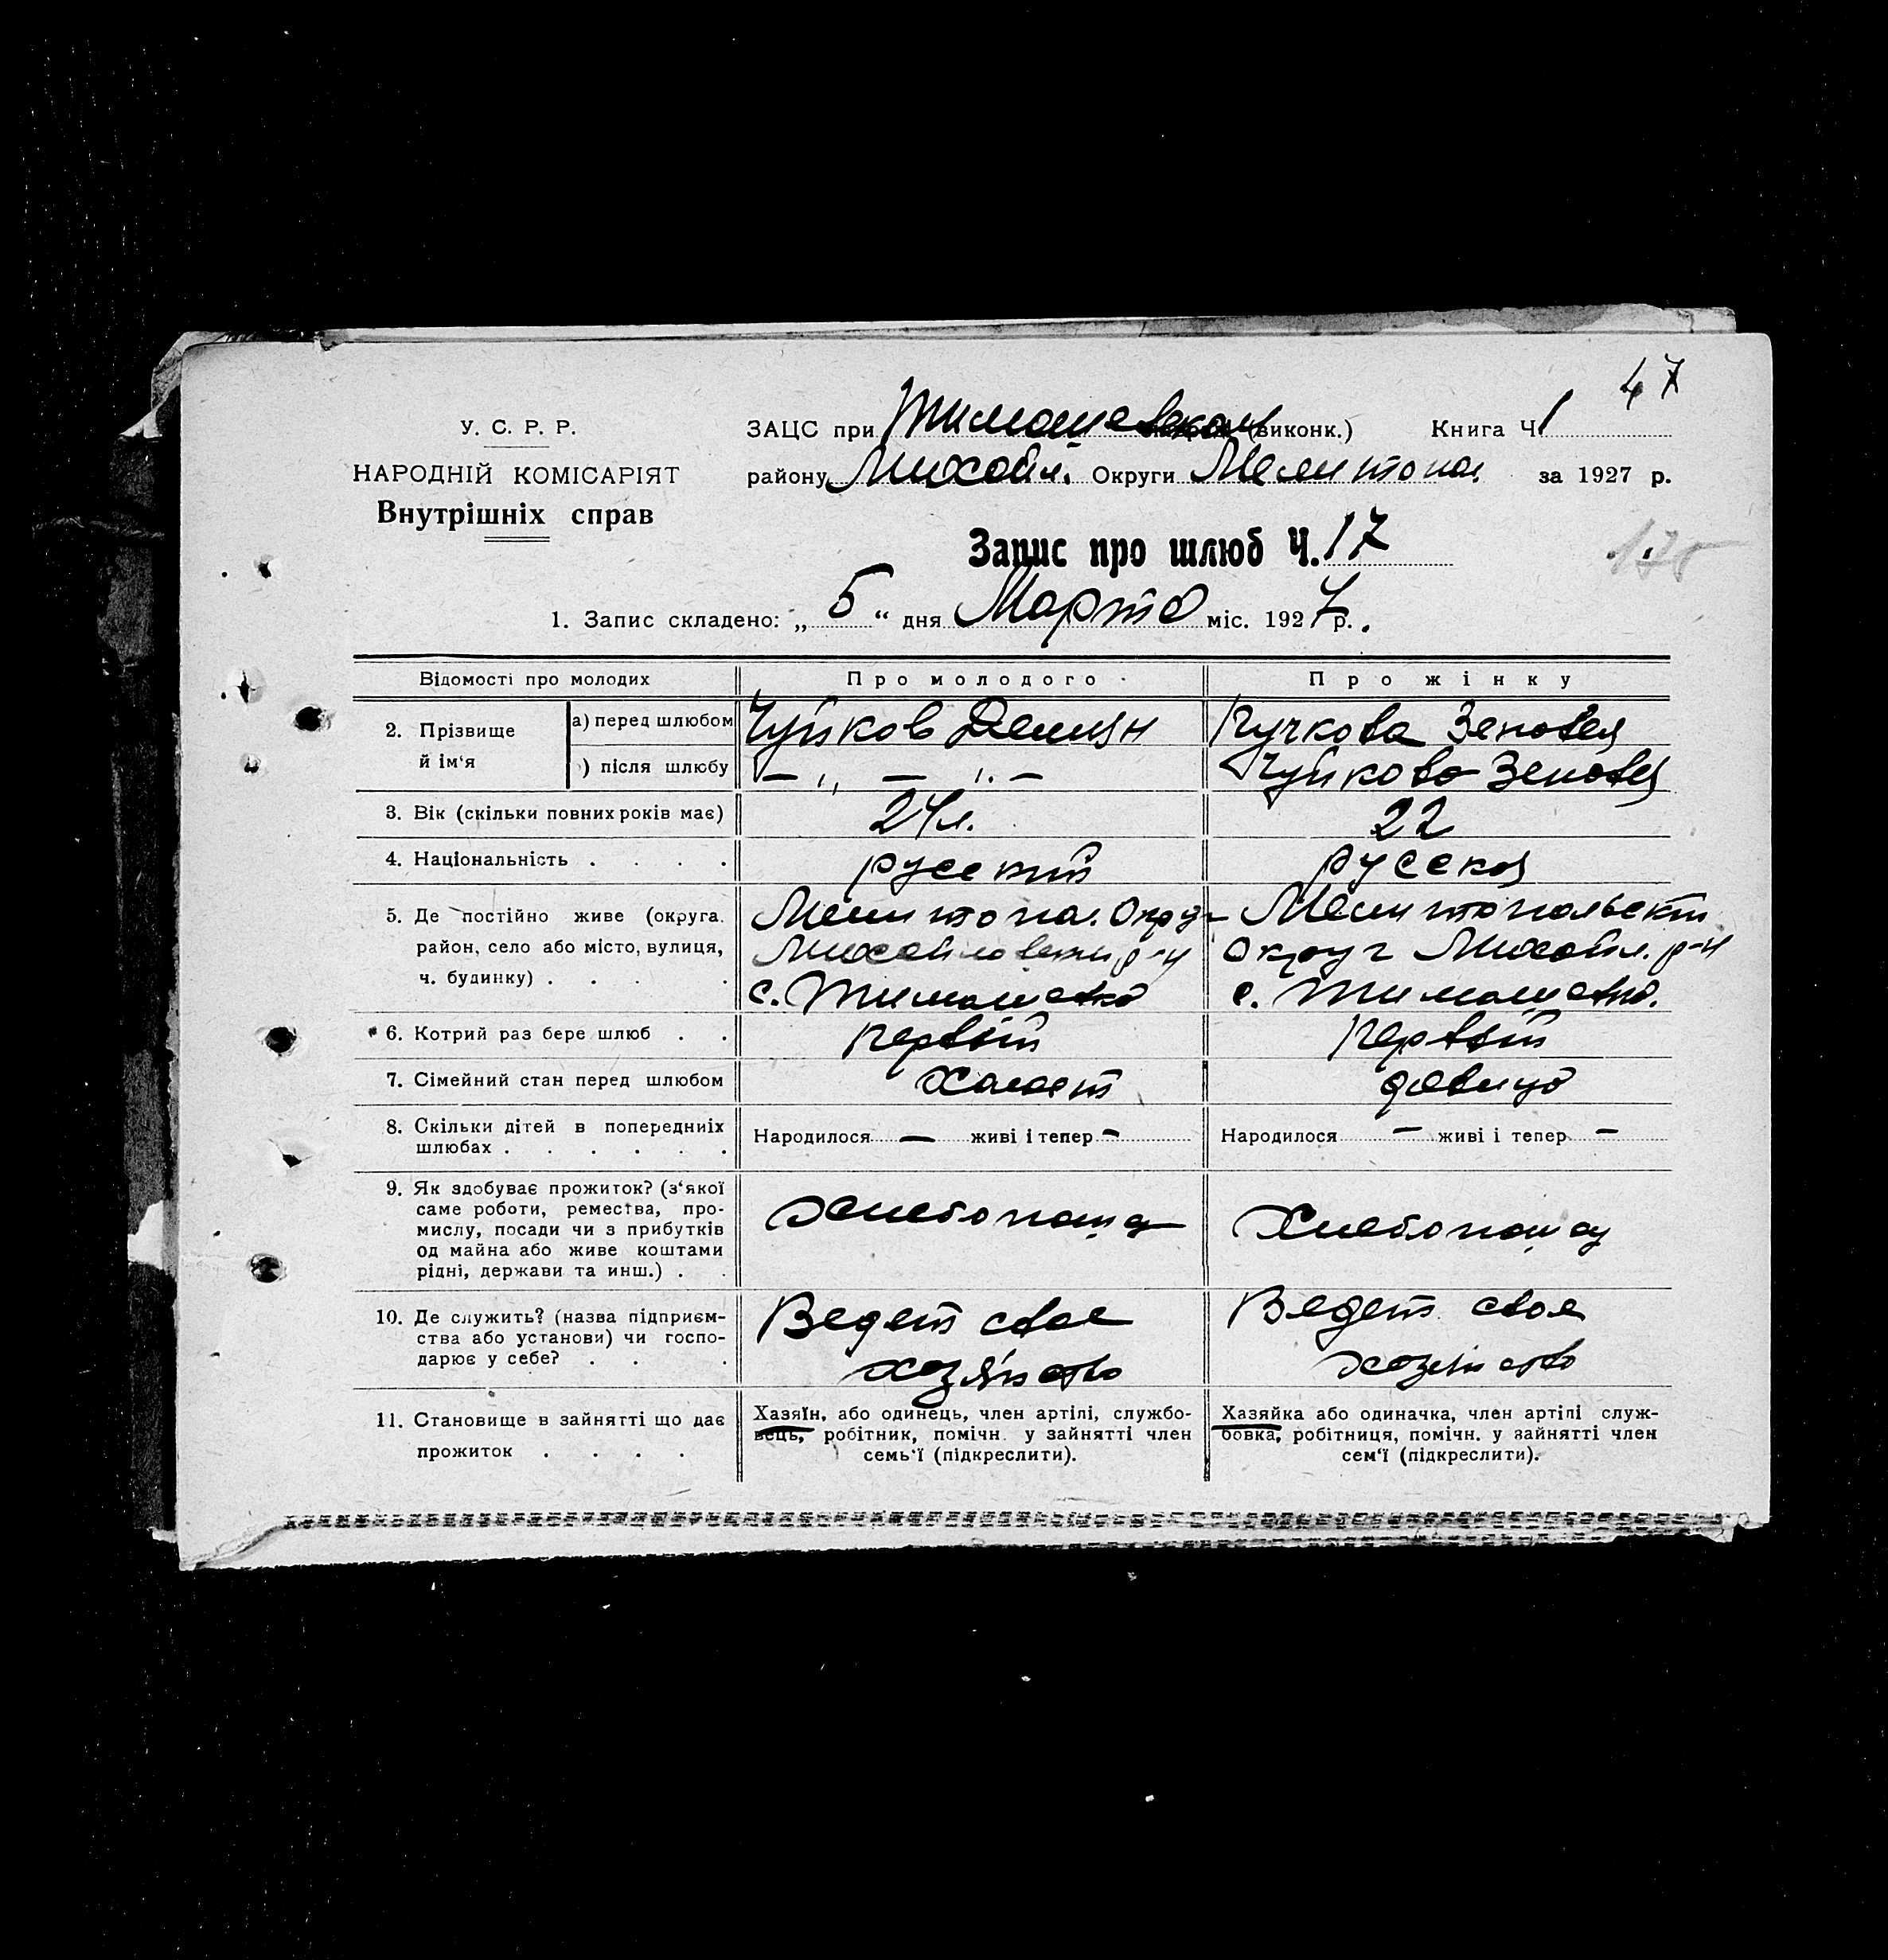 47
У. С. Р. Р.
НАРОДНІЙ КОМІСАРІЯТ
Внутрішніх справ
ЗАЦС при Тимошевском (виконк.) Книга Ч. 1
району Михайл. Округи Мелитопол. за 1927 р.
Запис про шлюб Ч. 17
1. Запис складено: „5“ дня Марта міс. 1927 р.
Відомості про молодих Про молодого Про жінку
2. Прізвище й ім‘я а) перед шлюбом Чуйков Демян Пучкова Зеновея
) після шлюбу — „ — „ — Чуйкова Зеновея
3. Вік (скільки повних років має) 24 л. 22
4. Національність . . . . русский русская
5. Де постійно живе (округа. Мелитопол. Округ Мелитопольский
район, село або місто, вулиця, Михайловский р-н округ Михайл. р-н
ч. будинку) . . . . с. Тимошевка с. Тимошевка.
6. Котрий раз бере шлюб . . первый первый
7. Сімейний стан перед шлюбом холост девица
8. Скільки дітей в попередниіх Народилося — живі і тепер — Народилося — живі і тепер —
шлюбах . . . . . .
9. Як здобуває прожиток? (з‘якої
саме роботи, ремества, про-
мислу, посади чи з прибутків Хлебопаш. Хлебопаш.
од майна або живе коштами
рідні, держави та инш.) . .
10. Де служить? (назва підприєм- Ведет свое Ведет свое
ства або установи) чи госпо-
дарює у себе? . . . хозяйство хозяйство
11. Становище в зайнятті що дає Хазяїн, або одинець, член артілі, службо- Хазяйка або одиначка, член артілі служ-
прожиток . . . . вець, робітник, помічн. у зайнятті член бовка, робітниця, помічн. у зайнятті член
семь‘ї (підкреслити). сем‘ї (підкреслити).